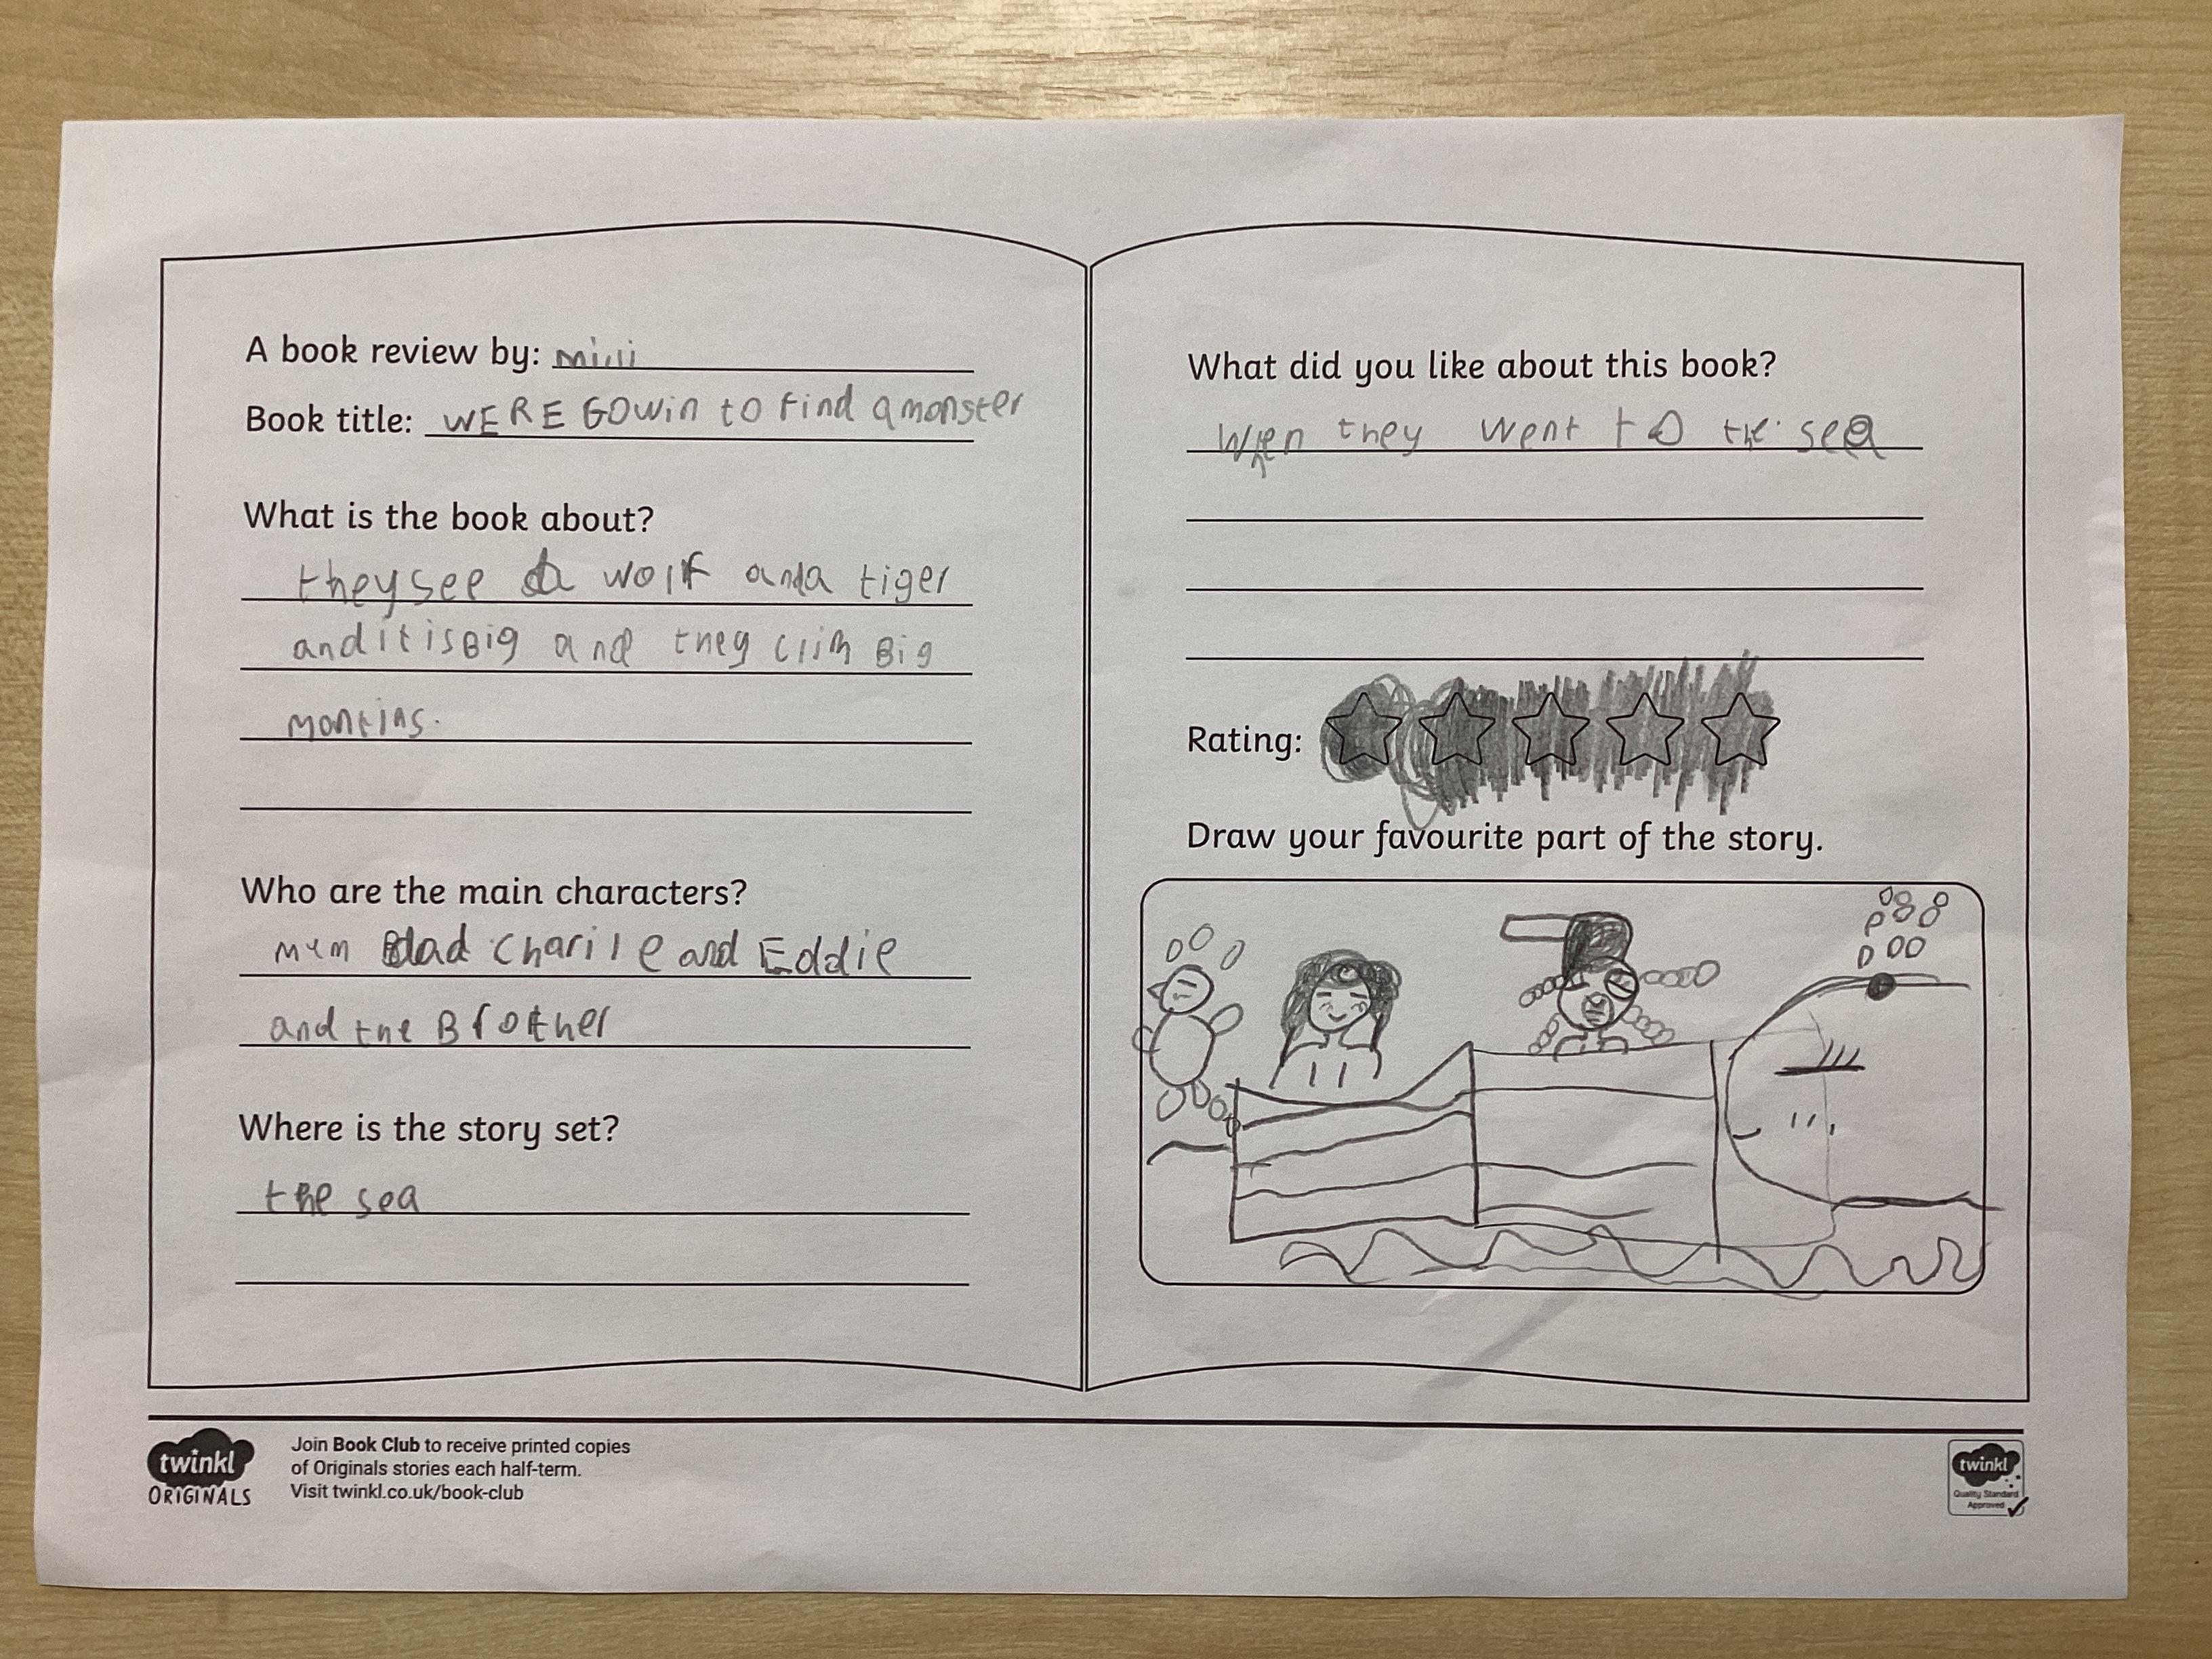 A book review by: milli
Book title: WERE GOWin to find a monster
What is the book about?
they see a wolf and a tiger
and it is Big and they clim Big
montins.
Who are the main characters?
mum dad Charile and Eddie
and the Brother
Where is the story set?
the sea
What did you like about this book?
When they went to the sea
Rating:
Draw your favourite part of the story.
twinkl
ORIGINALS
Join Book Club to receive printed copies
of Originals stories each half-term.
Visit twinkl.co.uk/book-club
twinkl
Quality Standard
Approved